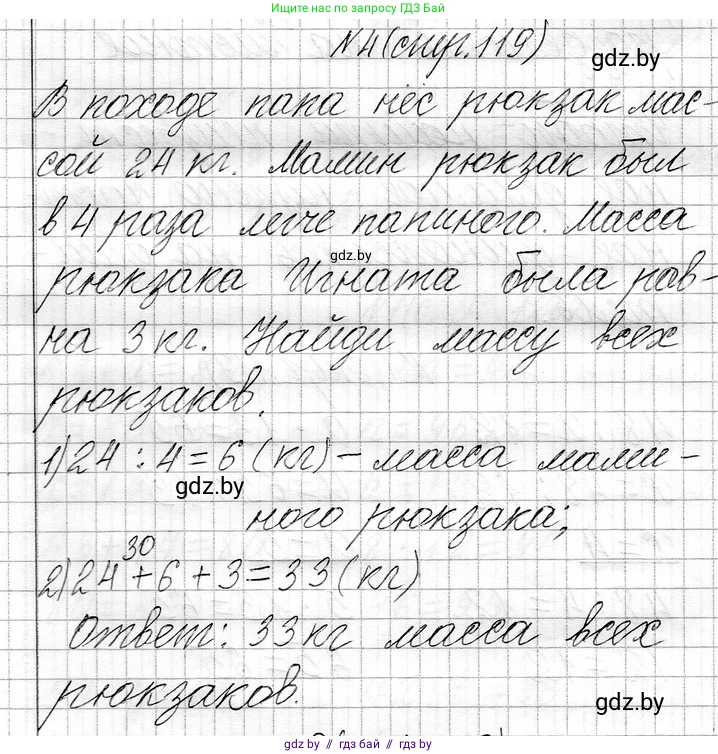 Ищите нас по запросу ГДЗ БАЙ
№4(стр.119)
gdz.by
В походе папа нёс рюкзак мас-
сой 24 кг. Мамин рюкзак был
в 4 раза легче папиного. Масса
gdz.by
рюкзака Игната была рав-
на 3 кг. Найди массу всех
рюкзаков.
1) 24 : 4 = 6 (кг) – масса мами-
gdz.by
ного рюкзака;
30
2) 24 + 6 + 3 = 33 (кг)
Ответ: 33 кг масса всех
рюкзаков.
gdz.by
gdz.by // гдз бай // гдз.бу